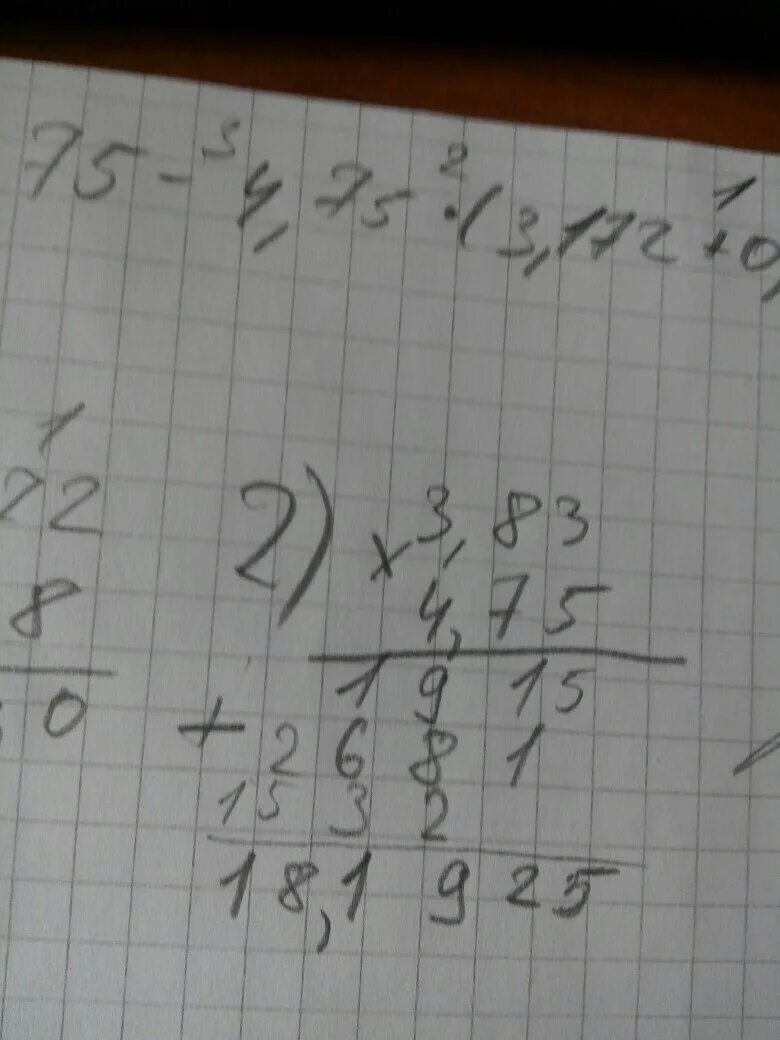 75 - 4,75 · (3,172 + 0,
3 2 1
1
72
8
0
2) × 3,83
4,75
1915
+ 2681
1532
18,1925